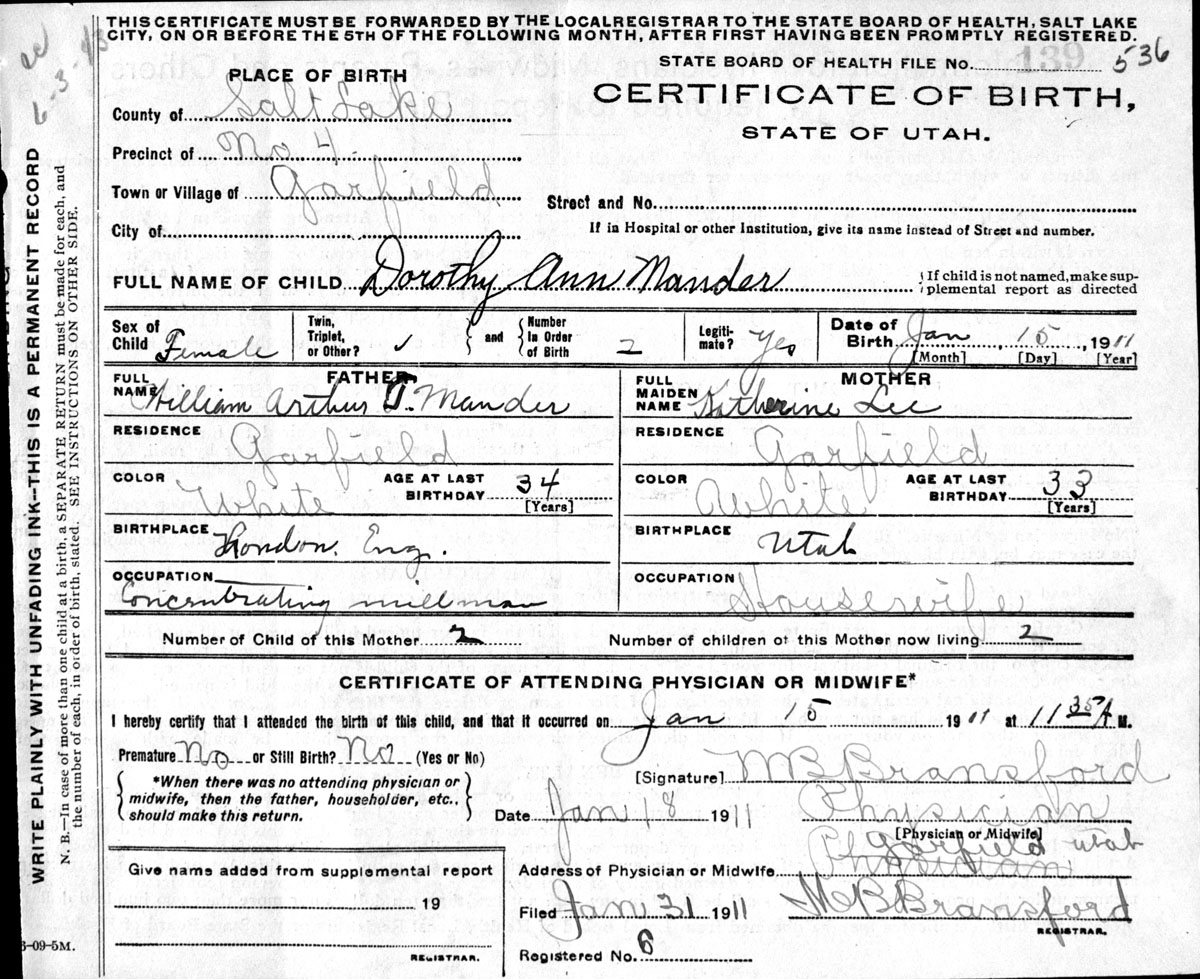 THIS CERTIFICATE MUST BE FORWARDED BY THE LOCAL REGISTRAR TO THE STATE BOARD OF HEALTH, SALT LAKE
CITY, ON OR BEFORE THE 5TH OF THE FOLLOWING MONTH, AFTER FIRST HAVING BEEN PROMPTLY REGISTERED.
STATE BOARD OF HEALTH FILE NO. 139 536
PLACE OF BIRTH
CERTIFICATE OF BIRTH,
STATE OF UTAH.
County of Salt Lake
Precinct of No 4
Town or Village of Garfield
Street and No.
City of
If in Hospital or other Institution, give its name instead of Street and number.
FULL NAME OF CHILD Dorothy Ann Mander
{If child is not named, make sup-
plemental report as directed
Sex of Child Female
Twin, Triplet, or Other? ✓ and Number in Order of Birth 2
Legiti-mate? Yes
Date of Birth, Jan 15, 1911
[Month] [Day] [Year]
FATHER
FULL NAME William Arthur T. Mander
RESIDENCE Garfield
COLOR White
AGE AT LAST BIRTHDAY 34
[Years]
BIRTHPLACE London, Eng.
OCCUPATION Concentrating millman
MOTHER
FULL MAIDEN NAME Katherine Lee
RESIDENCE Garfield
COLOR White
AGE AT LAST BIRTHDAY 33
[Years]
BIRTHPLACE Utah
OCCUPATION Housewife
Number of Child of this Mother 2 Number of children of this Mother now living 2
CERTIFICATE OF ATTENDING PHYSICIAN OR MIDWIFE*
I hereby certify that I attended the birth of this child, and that it occurred on Jan 15 1911 at 11 35 A M.
Premature No or Still Birth? No (Yes or No)
*When there was no attending physician or
midwife, then the father, householder, etc.,
should make this return.
[Signature] MB Bransford
Date Jan 18 1911 Physician
[Physician or Midwife]
Garfield Utah
Address of Physician or Midwife Physician
Filed Jan 31 1911 MB Bransford
REGISTRAR.
Registered No. 6
Give name added from supplemental report
19
REGISTRAR.
-09-5M.
WRITE PLAINLY WITH UNFADING INK--THIS IS A PERMANENT RECORD
N. B.—In case of more than one child at a birth, a SEPARATE RETURN must be made for each, and
the number of each, in order of birth, stated. SEE INSTRUCTIONS ON OTHER SIDE.